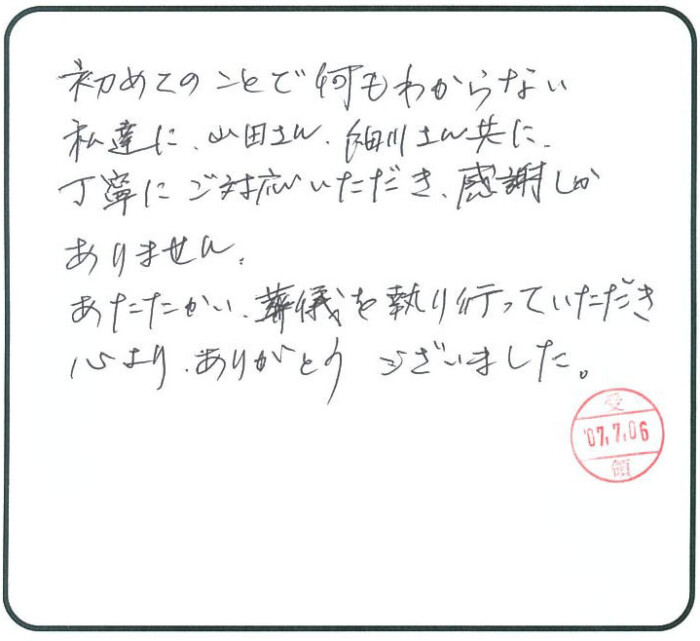 初めてのことで何もわからない
私達に、山田さん、細川さん共に、
丁寧にご対応いただき、感謝しか
ありません。
あたたかい、葬儀を執り行っていただき
心より、ありがとう ございました。
受
'07.7.06
領